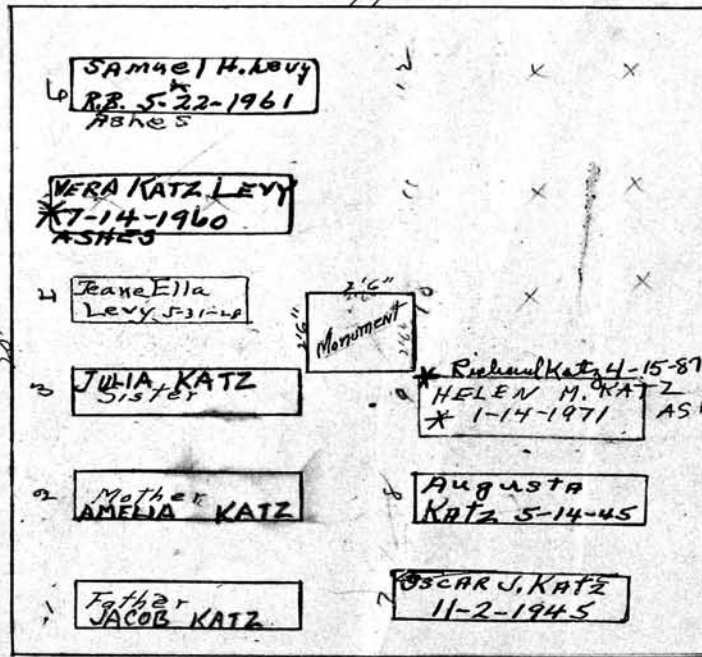 SAMUEL H. Levy
6
R.B. 5-22-1961
Ashes
12
VERA KATZ LEVY
*7-14-1960
ASHES
11
4
Jeane Ella
Levy 5-31-28
2'6"
2'6"
Monument
10
3
JULIA KATZ
Sister
* Richard Katz 4-15-87
9
HELEN M. KATZ
* 1-14-1971
AS
2
Mother
AMELIA KATZ
8
Augusta
KATZ 5-14-45
1
Father
JACOB KATZ
7
OSCAR J. KATZ
11-2-1945